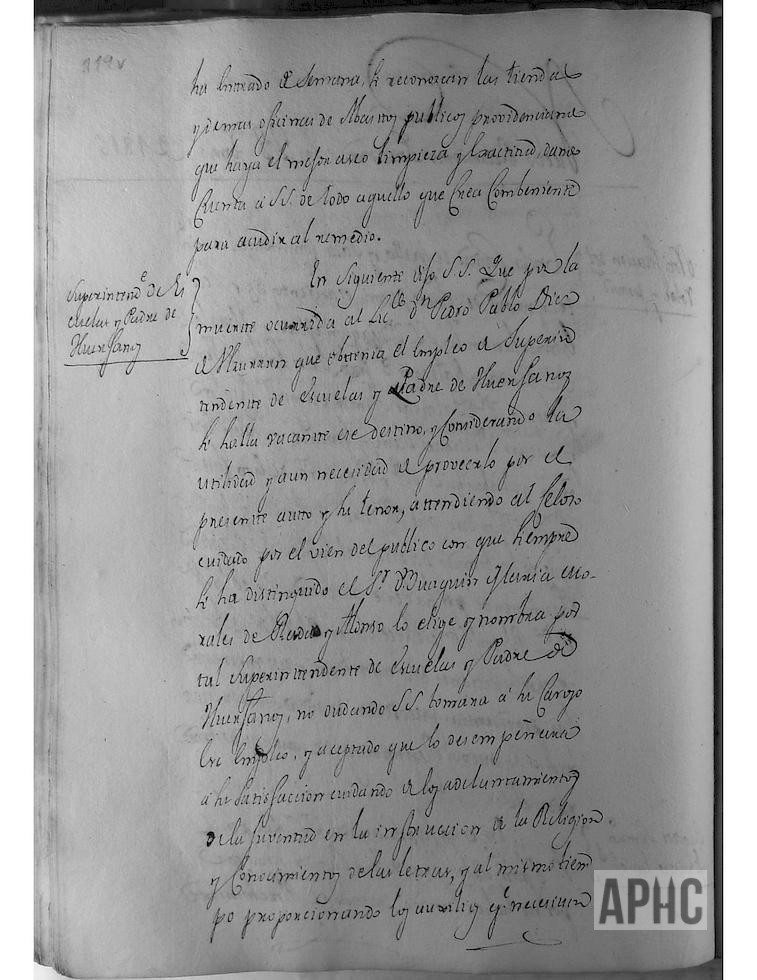 219v
ha entrado de Semana, se reconozcan las tiendas
y demas oficinas de Abastos publicos providenciando
que haya el mejor aseo limpieza y exactitud, dando
Cuenta á SS. de todo aquello que Crea Combeniente
para acudir al remedio.
Superintend.e de Es
cuelas y Padre de
Huerfanos
En Siguiente dijo S.S. Que por la
muerte ocurrida al Lic.do d.n Pedro Pablo Diez
que obtenia el Empleo de Superin
tendente de escuelas y Padre de Huerfanos
se halla vacante ese destino, y Considerando la
utilidad y aun necesidad de proveerlo por el
presente auto y su tenor, attendiendo al Seloso
cuidado por el vien del publico con que siempre
se ha distinguido el S.r D. Juaquin Maria Mo-
rales de Rada y Alonso lo elige y nombra por
tal Superintendente de escuelas y Padre de
Huerfanos, no dudando SS. tomara á su Cargo
ese Empleo, y aceptado que lo desempeñara
á su Satisfaccion cuidando de los adelantamientos
de la Juventud en la instruccion de la Religion
y Conocimientos de las letras, y al mismo tiem
po proporcionando los auxilios q.e necesitan
APHC